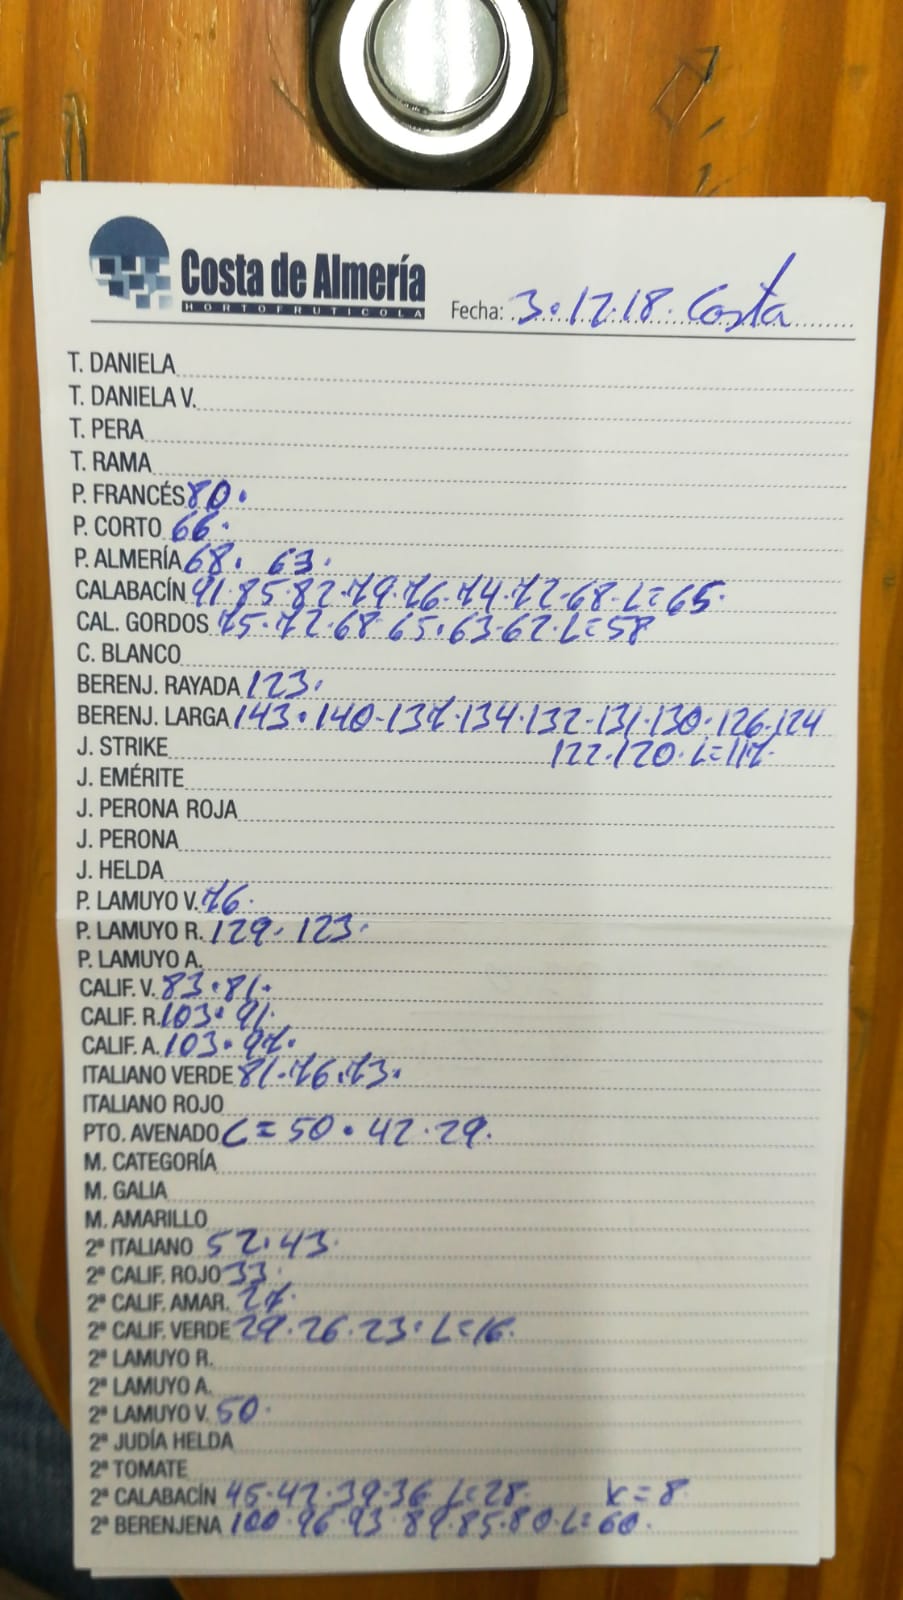 Costa de Almería
HORTOFRUTICOLA
Fecha: 3.12.18. Costa
T. DANIELA
T. DANIELA V.
T. PERA
T. RAMA
P. FRANCÉS 80.
P. CORTO 66.
P. ALMERÍA 68. 63.
CALABACÍN 91.85.82.79.76.74.72.68.L=65.
CAL. GORDOS 75.72.68.65.63.62.L=58
C. BLANCO
BERENJ. RAYADA 123.
BERENJ. LARGA 143.140.137.134.132.131.130.126.124
J. STRIKE 122.120.L=117.
J. EMÉRITE
J. PERONA ROJA
J. PERONA
J. HELDA
P. LAMUYO V. 76.
P. LAMUYO R. 129. 123.
P. LAMUYO A.
CALIF. V. 83.81.
CALIF. R. 103.91.
CALIF. A. 103.97.
ITALIANO VERDE 81.76.73.
ITALIANO ROJO
PTO. AVENADO C=50.42.29.
M. CATEGORÍA
M. GALIA
M. AMARILLO
2ª ITALIANO 52.43.
2ª CALIF. ROJO 33.
2ª CALIF. AMAR. 27.
2ª CALIF. VERDE 29.26.23.L=16.
2ª LAMUYO R.
2ª LAMUYO A.
2ª LAMUYO V. 50.
2ª JUDÍA HELDA
2ª TOMATE
2ª CALABACÍN 45.42.39.36.L=28. K=8.
2ª BERENJENA 100.96.93.89.85.80.L=60.